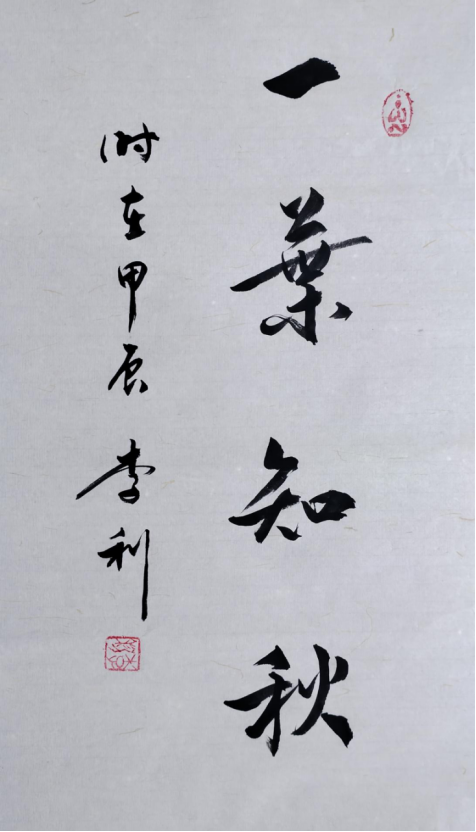 一葉知秋
时在甲辰 李利